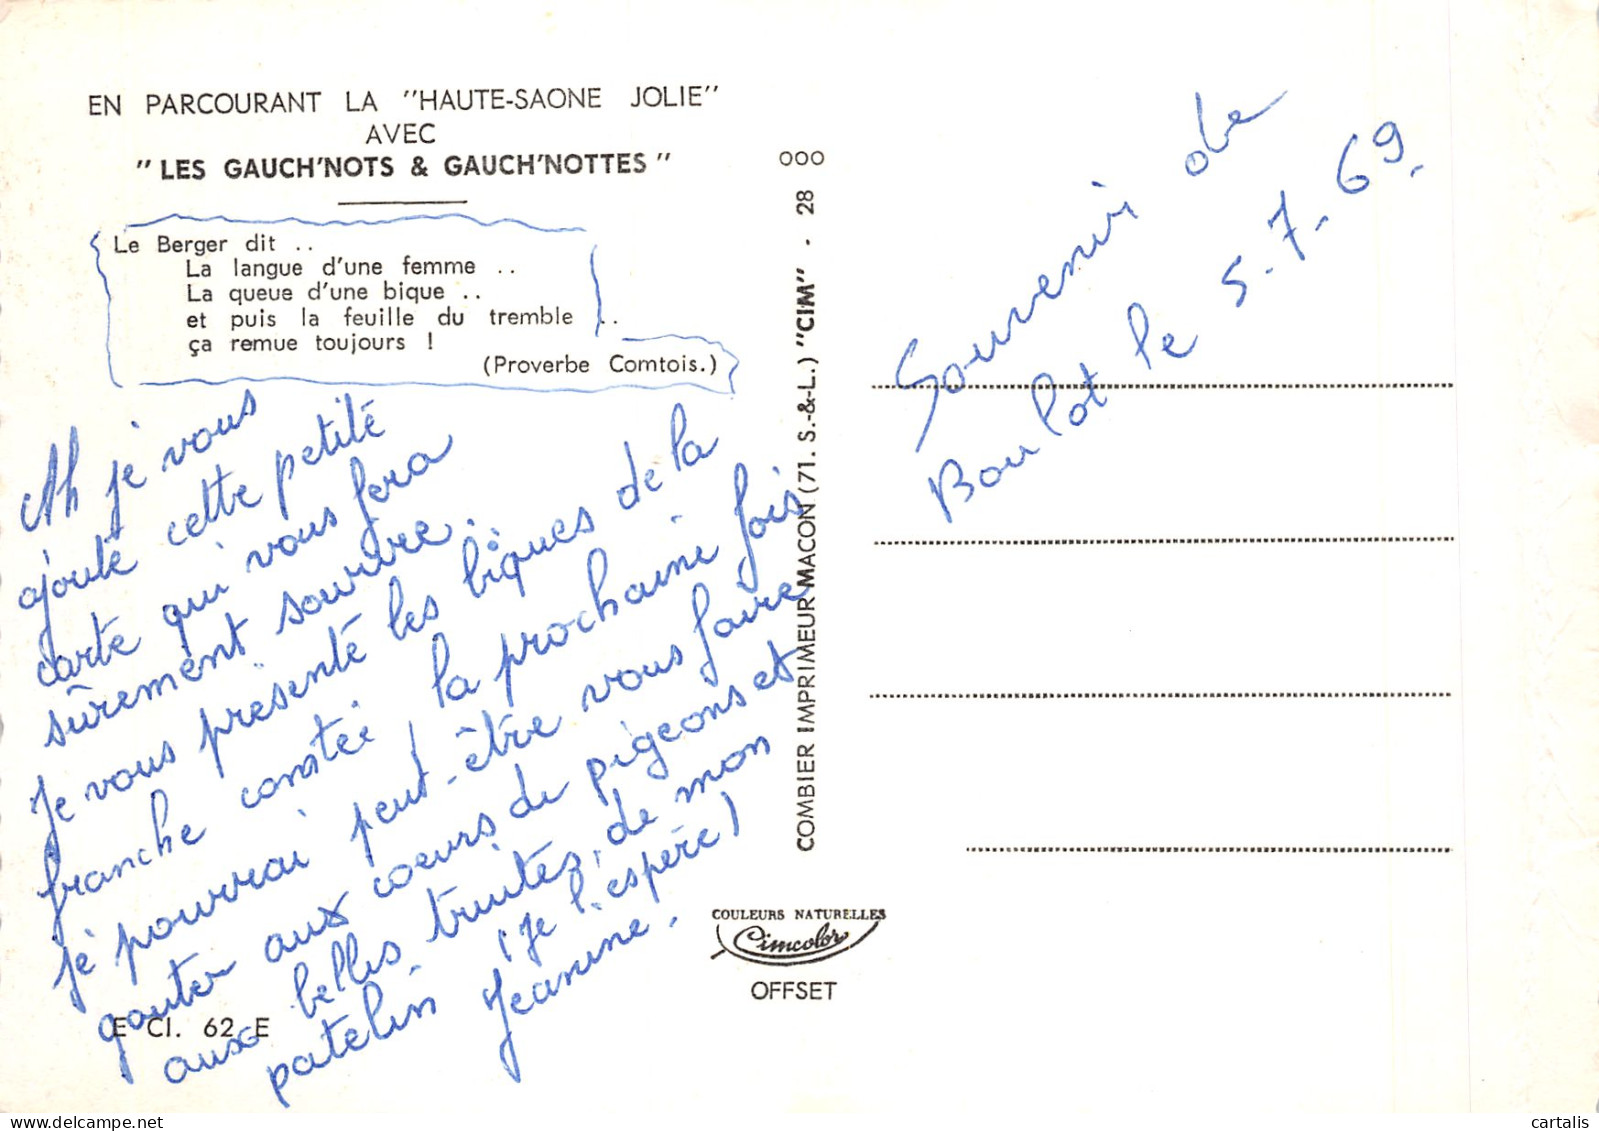 EN PARCOURANT LA "HAUTE-SAONE JOLIE"
AVEC
"LES GAUCH'NOTS & GAUCH'NOTTES"
Le Berger dit ..
La langue d'une femme ..
La queue d'une bique ..
et puis la feuille du tremble ..
ça remue toujours !
(Proverbe Comtois.)
Ah je vous
ajoute cette petite
carte qui vous fera
sûrement sourire.
Je vous présente les biques de la
franche comtée, la prochaine fois
je pourrai peut-être vous faire
gouter aux coeurs de pigeons et
aux belles truites, de mon
patelin (je l'espère)
Jeanine.
E CI. 62 E
000
COMBIER IMPRIMEUR MACON (71. S.-&-L.) "CIM" - 28
COULEURS NATURELLES
Cimcolor
OFFSET
Souvenir de
Boulot le 5-7-69.
cartalis